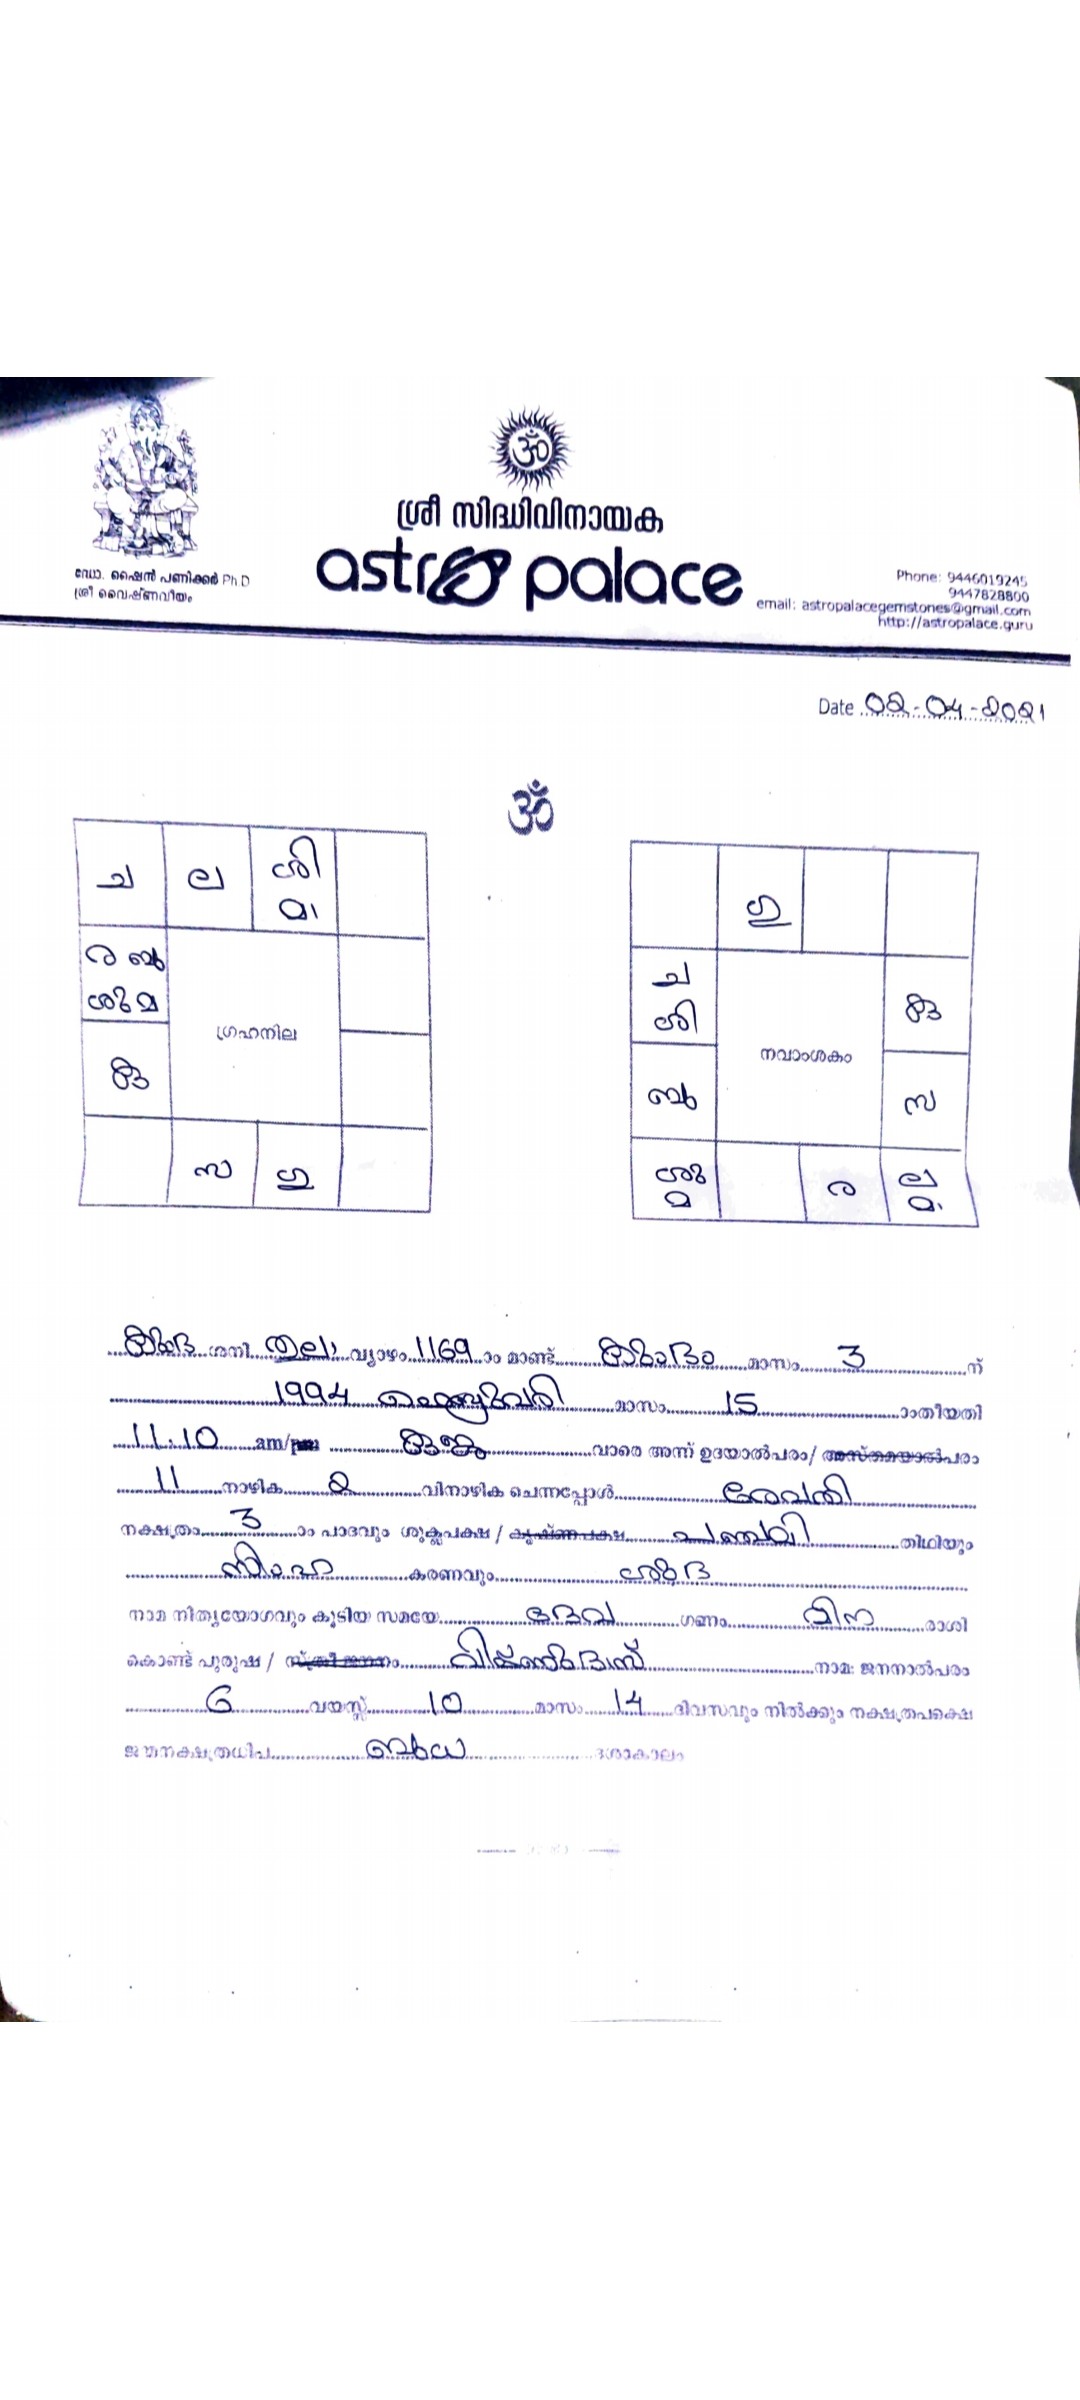 ॐ
ശ്രീ സിദ്ധിവിനായക
astro palace
ഡോ. ഷൈൻ പണിക്കർ Ph.D
ശ്രീ വൈഷ്ണവീയം
Phone: 9446019245
9447828800
email: astropalacegemstones@gmail.com
http://astropalace.guru
Date 02-04-2021
ॐ
ച ല ശി
മാ
ര ബു
ശു മ
ഗ്രഹനില
കു
സ ഗു
ഗു
ച
ശി
കു
നവാംശകം
ബു
സ
ശു
മ
ര
ല
മാ
കുംഭ ശനി തുലാ വ്യാഴം 1169 ാം മാണ്ട് കുംഭം മാസം 3 ന്
1994 ഫെബ്രുവരി മാസം 15 ാംതീയതി
11.10 am/pm കുജ വാരെ അന്ന് ഉദയാൽപരം/ അസ്തമയാൽപരം
11 നാഴിക 2 വിനാഴിക ചെന്നപ്പോൾ രേവതി
നക്ഷത്രം 3 ാം പാദവും ശുക്ലപക്ഷ / കൃഷ്ണപക്ഷ പഞ്ചമി തിഥിയും
സിംഹ കരണവും ശുഭ
നാമ നിത്യയോഗവും കൂടിയ സമയേ ദേവ ഗണം മീന രാശി
കൊണ്ട് പുരുഷ / വിഷ്ണുദാസ് നാമ: ജനനാൽപരം
6 വയസ്സ് 10 മാസം 14 ദിവസവും നിൽക്കും നക്ഷത്രപക്ഷെ
ജന്മനക്ഷത്രധിപ ബുധ ദശാകാലം